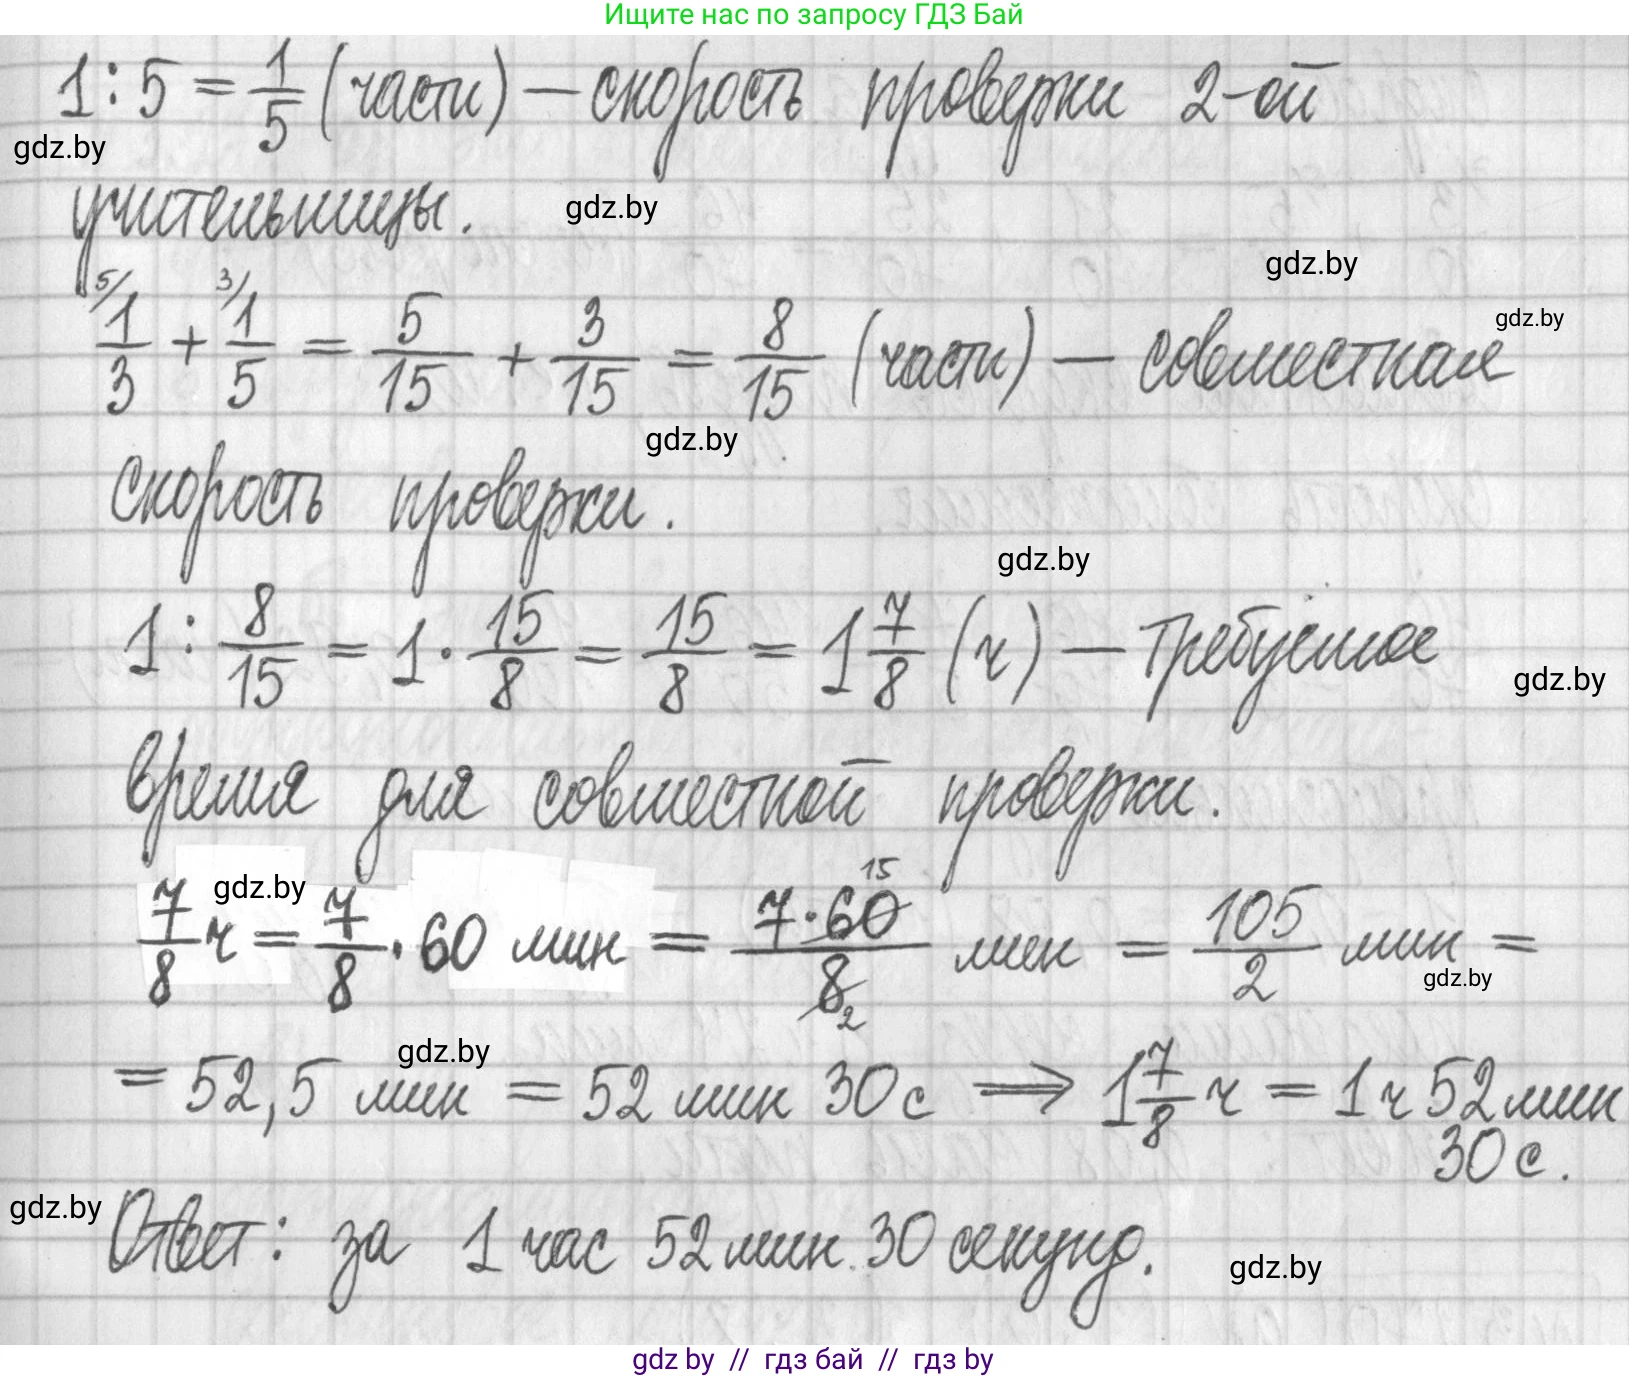 Ищите нас по запросу ГДЗ Бай
1 : 5 = 1/5 (части) — скорость проверки 2-ой
gdz.by
учительницы.
gdz.by
gdz.by
5/ 1/3 + 3/ 1/5 = 5/15 + 3/15 = 8/15 (части) — совместная
gdz.by
gdz.by
скорость проверки.
gdz.by
1 : 8/15 = 1 · 15/8 = 15/8 = 1 7/8 (ч) — требуемое
gdz.by
время для совместной проверки.
gdz.by
7/8 ч = 7/8 · 60 мин = 7·60 15/8 2 мин = 105/2 мин =
gdz.by
gdz.by
= 52,5 мин = 52 мин 30 с ⟹ 1 7/8 ч = 1 ч 52 мин
30 с.
gdz.by
Ответ: за 1 час 52 мин. 30 секунд.
gdz.by
gdz by // гдз бай // гдз by